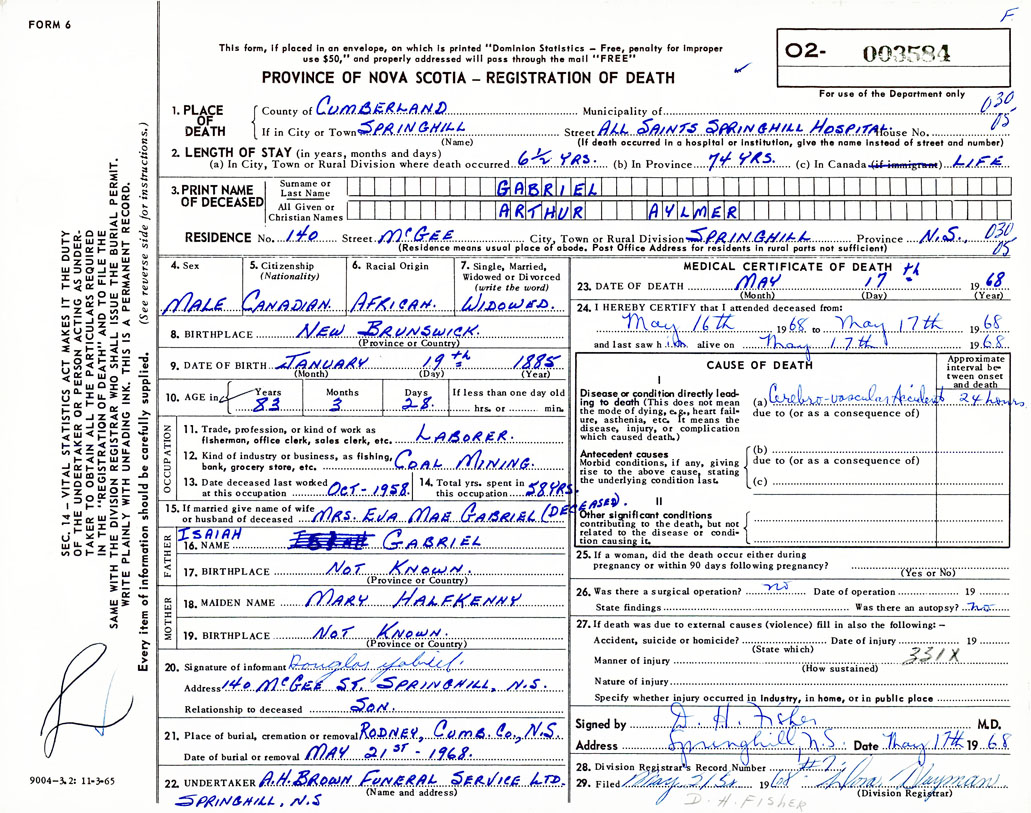 F.
FORM 6
This form, if placed in an envelope, on which is printed "Dominion Statistics – Free, penalty for improper
use $50," and properly addressed will pass through the mail "FREE"
O2- 003584
PROVINCE OF NOVA SCOTIA – REGISTRATION OF DEATH
For use of the Department only
1. PLACE OF DEATH County of CUMBERLAND Municipality of 030
If in City or Town SPRINGHILL Street ALL SAINTS SPRINGHILL HOSPITAL House No. 05
(Name) (If death occurred in a hospital or institution, give the name instead of street and number)
2. LENGTH OF STAY (in years, months and days)
(a) In City, Town or Rural Division where death occurred 6½ YRS. (b) In Province 74 YRS. (c) In Canada (if immigrant) LIFE
3. PRINT NAME OF DECEASED Surname or Last Name GABRIEL
All Given or Christian Names ARTHUR AYLMER
RESIDENCE No. 140 Street McGEE City, Town or Rural Division SPRINGHILL Province N.S., 030
(Residence means usual place of abode. Post Office Address for residents in rural parts not sufficient) 05
4. Sex 5. Citizenship (Nationality) 6. Racial Origin 7. Single, Married, Widowed or Divorced (write the word)
MALE CANADIAN. AFRICAN. WIDOWED.
8. BIRTHPLACE NEW BRUNSWICK.
(Province or Country)
9. DATE OF BIRTH JANUARY 19th 1885
(Month) (Day) (Year)
10. AGE in Years Months Days If less than one day old
83 3 28 hrs. or min.
OCCUPATION
11. Trade, profession, or kind of work as
fisherman, office clerk, sales clerk, etc. LABORER.
12. Kind of industry or business, as fishing,
bank, grocery store, etc. COAL MINING.
13. Date deceased last worked
at this occupation OCT-1958
14. Total yrs. spent in
this occupation 58 YRS.
15. If married give name of wife
or husband of deceased MRS. EVA MAE GABRIEL (DECEASED).
FATHER
ISAIAH
16. NAME GABRIEL
17. BIRTHPLACE NOT KNOWN.
(Province or Country)
MOTHER
18. MAIDEN NAME MARY HALFKENNY
19. BIRTHPLACE NOT KNOWN.
(Province or Country)
20. Signature of informant Douglas Gabriel.
Address 140 McGEE ST. SPRINGHILL, N.S.
Relationship to deceased SON.
21. Place of burial, cremation or removal RODNEY, CUMB. CO., N.S.
Date of burial or removal MAY 21ST - 1968.
22. UNDERTAKER A.H. BROWN FUNERAL SERVICE LTD.
(Name and address)
SPRINGHILL, N.S
MEDICAL CERTIFICATE OF DEATH
23. DATE OF DEATH MAY 17th 1968
(Month) (Day) (Year)
24. I HEREBY CERTIFY that I attended deceased from:
May 16th 1968 to May 17th 1968
and last saw him alive on May 17th 1968.
CAUSE OF DEATH
Approximate interval between onset and death
I
Disease or condition directly leading to death (This does not mean the mode of dying, e.g., heart failure, asthenia, etc. It means the disease, injury, or complication which caused death.)
(a) Cerebro-vascular Accident 24 hours
due to (or as a consequence of)
Antecedent causes
Morbid conditions, if any, giving rise to the above cause, stating the underlying condition last.
(b)
due to (or as a consequence of)
(c)
II
Other significant conditions
contributing to the death, but not related to the disease or condition causing it.
25. If a woman, did the death occur either during
pregnancy or within 90 days following pregnancy?
(Yes or No)
26. Was there a surgical operation? no Date of operation 19
State findings Was there an autopsy? no.
27. If death was due to external causes (violence) fill in also the following: –
Accident, suicide or homicide? Date of injury 19
(State which) 331X
Manner of injury
(How sustained)
Nature of injury
Specify whether injury occurred in Industry, in home, or in public place
Signed by D. H. Fisher M.D.
Address Springhill, N.S. Date May 17th 1968
28. Division Registrar's Record Number #7
29. Filed May 21st 1968
(Division Registrar)
D. H. FISHER
SEC. 14 – VITAL STATISTICS ACT MAKES IT THE DUTY
OF THE UNDERTAKER OR PERSON ACTING AS UNDER-
TAKER TO OBTAIN ALL THE PARTICULARS REQUIRED
IN THE "REGISTRATION OF DEATH" AND TO FILE THE
SAME WITH THE DIVISION REGISTRAR WHO SHALL ISSUE THE BURIAL PERMIT.
WRITE PLAINLY WITH UNFADING INK. THIS IS A PERMANENT RECORD.
Every item of information should be carefully supplied. (See reverse side for instructions.)
9004-3.2: 11-3-65